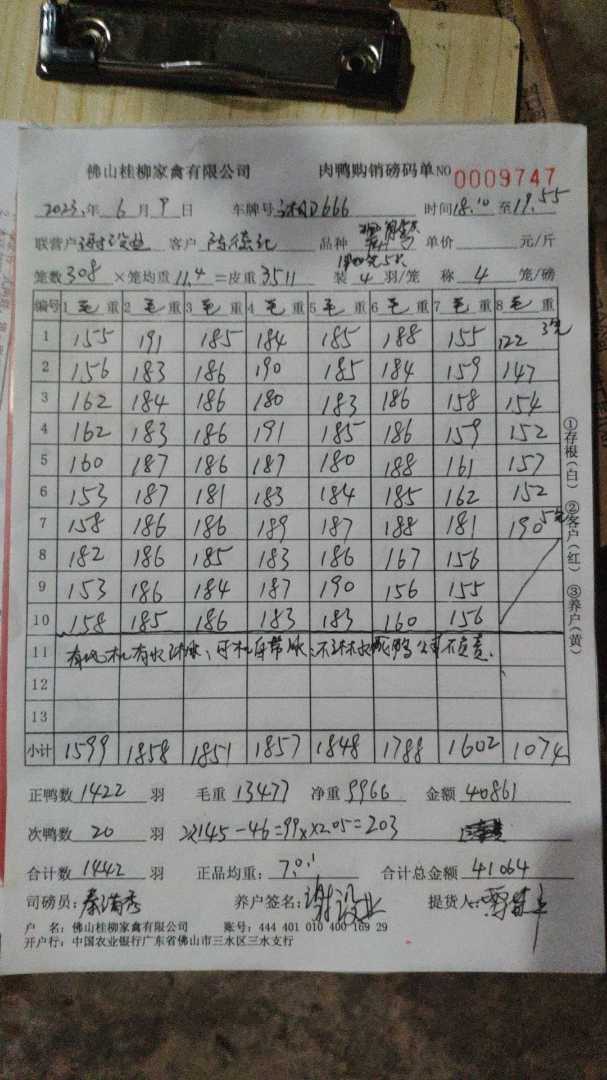 佛山桂柳家禽有限公司 肉鸭购销磅码单 NO 0009747
2023年 6月 9日 车牌号 湘D666 时间 18.10 至 19.55
联营户 谢设业 客户 品种 单价 元/斤
笼数 308 ×笼均重 11.4 =皮重 3511 装 4 羽/笼 称 4 笼/磅
编号 1 毛 重 2 毛 重 3 毛 重 4 毛 重 5 毛 重 6 毛 重 7 毛 重 8 毛 重
1 155 191 185 184 185 188 155 122 3笼
2 156 183 186 190 185 184 159 147
3 162 184 186 180 183 186 158 154
4 162 183 186 191 185 186 159 152
5 160 187 186 187 180 188 161 157
6 153 187 181 183 184 185 162 152
7 158 186 186 189 187 188 181 190 5笼
8 182 186 185 183 186 167 156
9 153 186 184 187 190 156 155
10 158 185 186 183 183 160 156
11
12
13
小计 1599 1858 1851 1857 1848 1788 1602 1074
①存根(白) ②客户(红) ③养户(黄)
正鸭数 1422 羽 毛重 13477 净重 9966 金额 40861
次鸭数 20 羽 145-46=99××2.05=203
合计数 1442 羽 正品均重: 7.01 合计总金额 41064
司磅员: 秦满秀 养户签名: 谢设业 提货人:
户 名: 佛山桂柳家禽有限公司 账号: 444 401 010 400 169 29
开户行: 中国农业银行广东省佛山市三水区三水支行